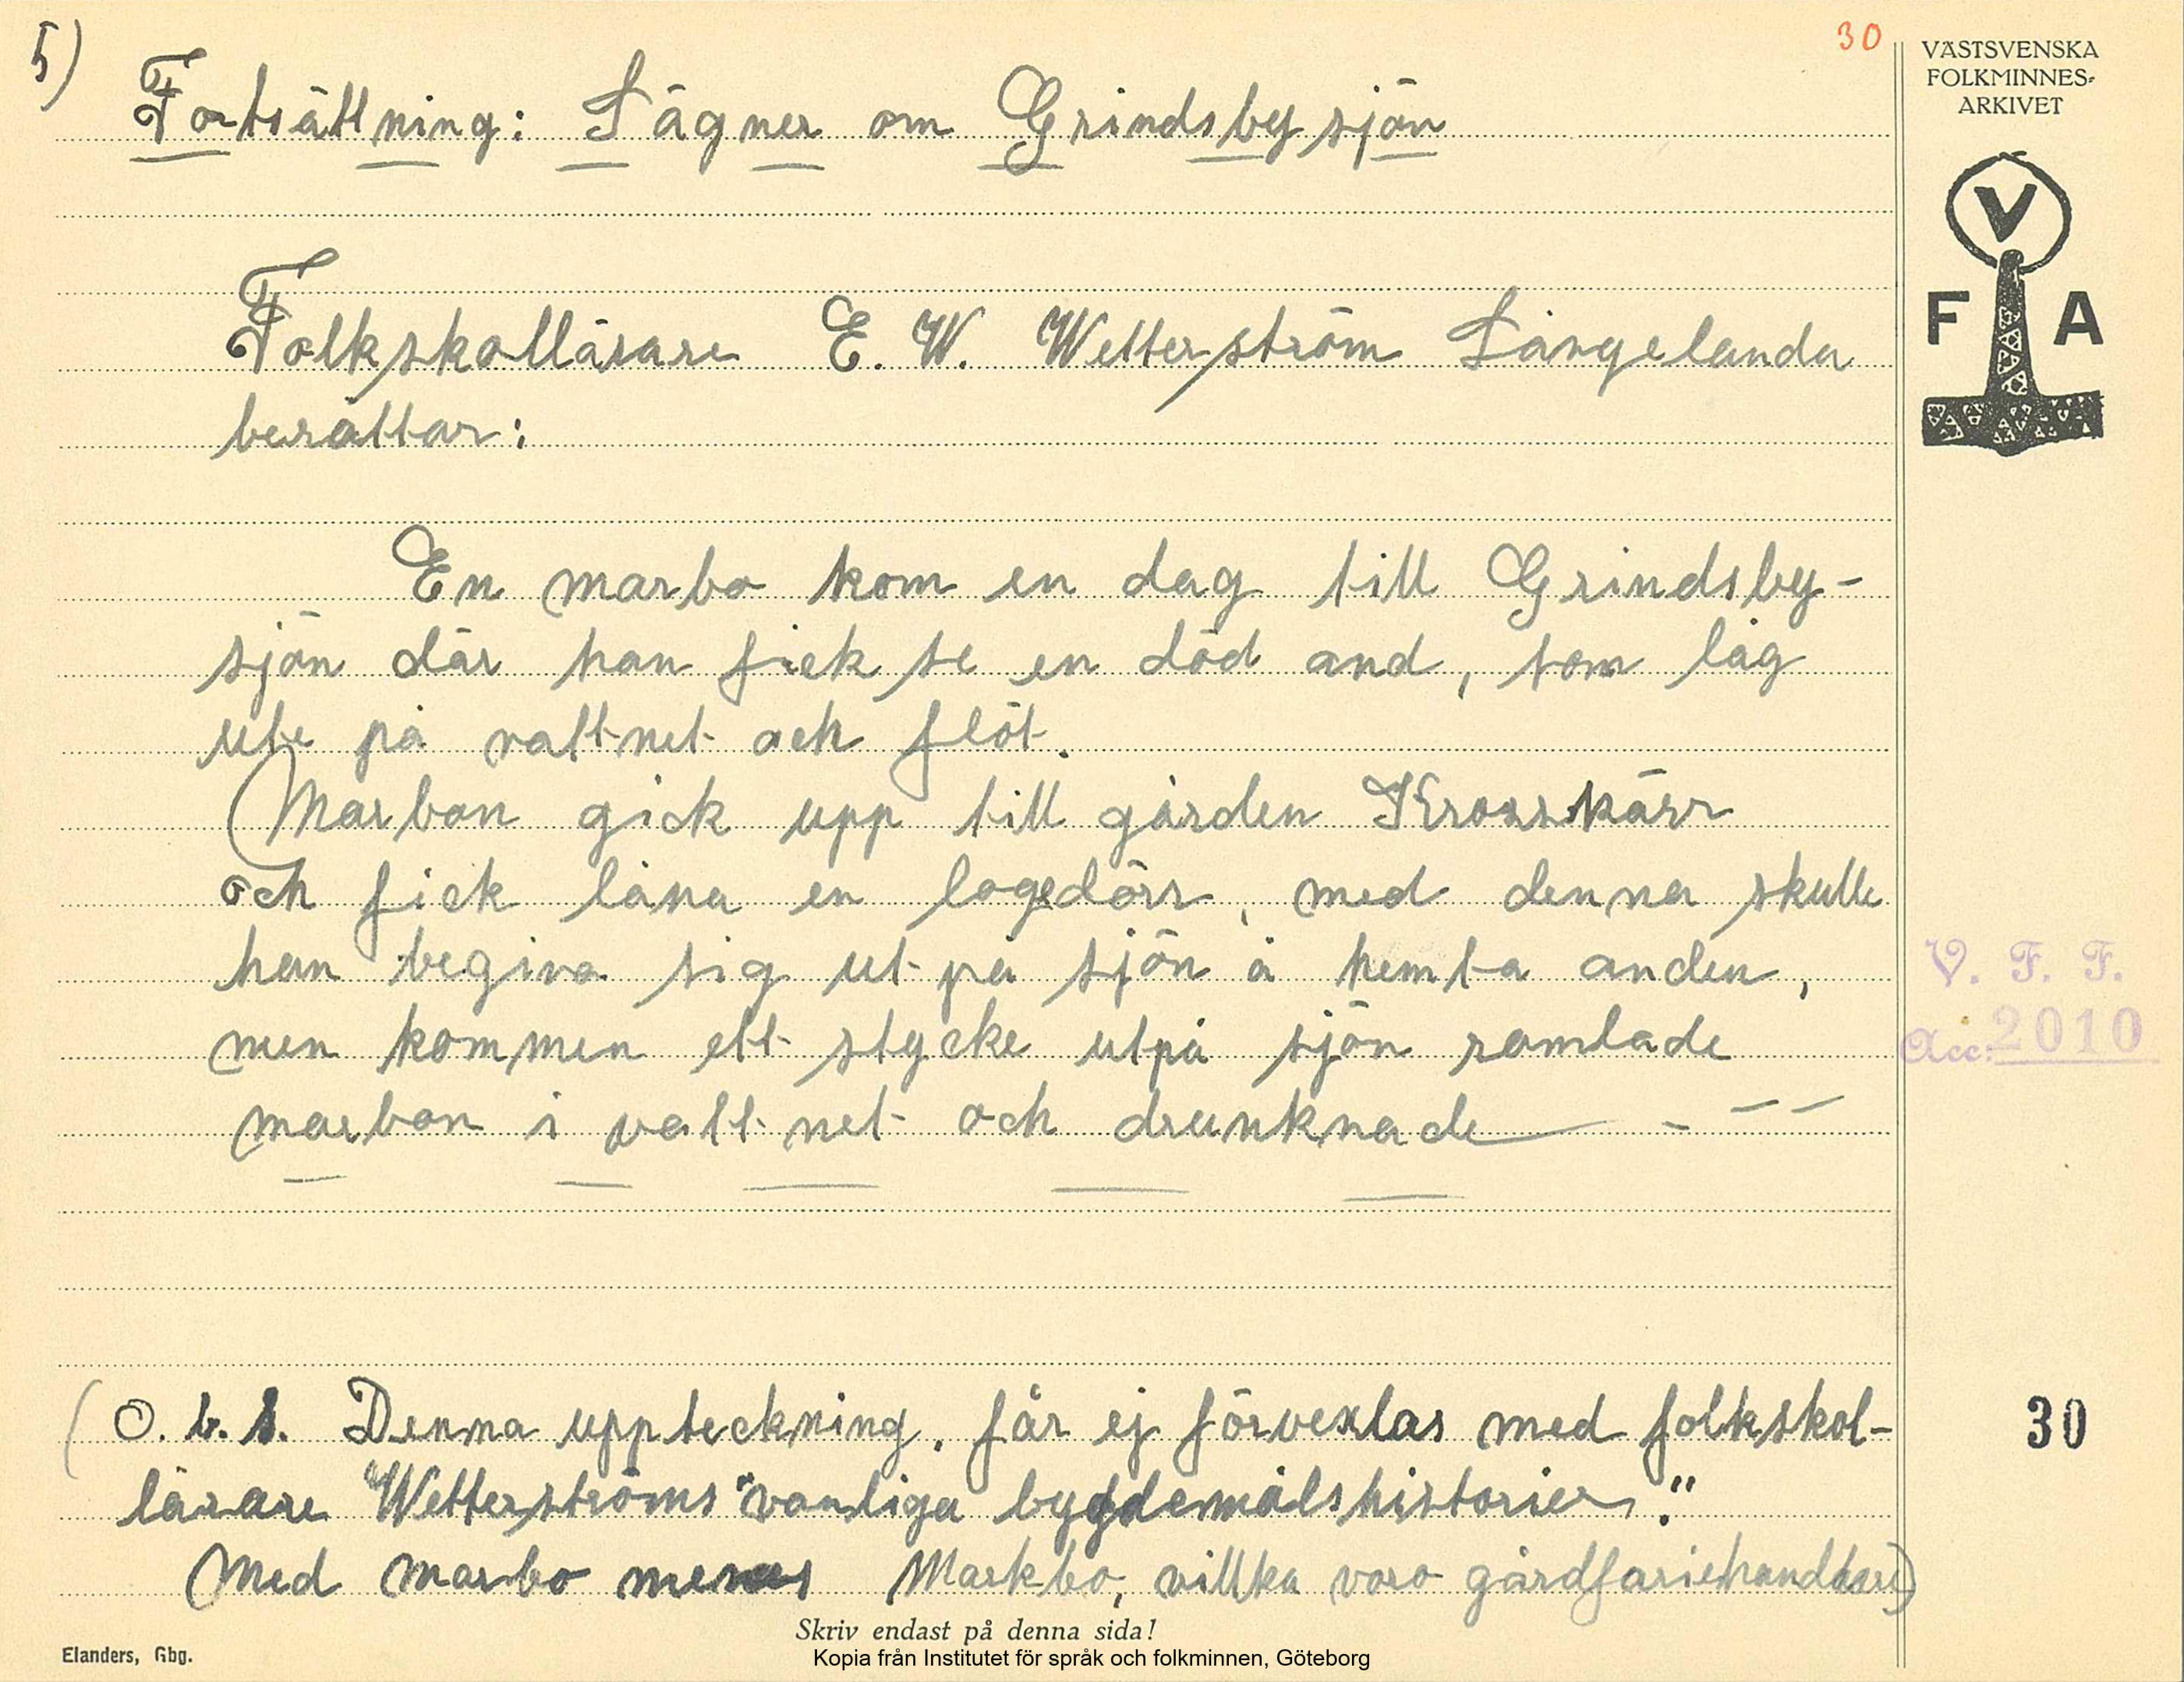 5)
30
Fortsättning: Sägner om Grindsbysjön
Folkskollärare E. W. Wetterström Långelanda
berättar:
En marbo kom en dag till Grindsby-
sjön där han fick se en död and, som låg
ute på vattnet och flöt.
Marbon gick upp till gården Krosskärr
och fick låna en logedörr, med denna skulle
han begiva sig ut på sjön å hemta anden,
men kommen ett stycke utpå sjön ramlade
marbon i vattnet och drunknade - - -
(O. b. s. Denna uppteckning. får ej förvexlas med folkskol-
lärare Wetterströms "vanliga bygdemålshistorier."
Med marbo menas Markbo, villka voro gårdfariehandlare)
VÄSTSVENSKA
FOLKMINNES-
ARKIVET
V
F A
V. F. F.
Acc: 2010
30
Skriv endast på denna sida!
Elanders, Gbg.
Kopia från Institutet för språk och folkminnen, Göteborg